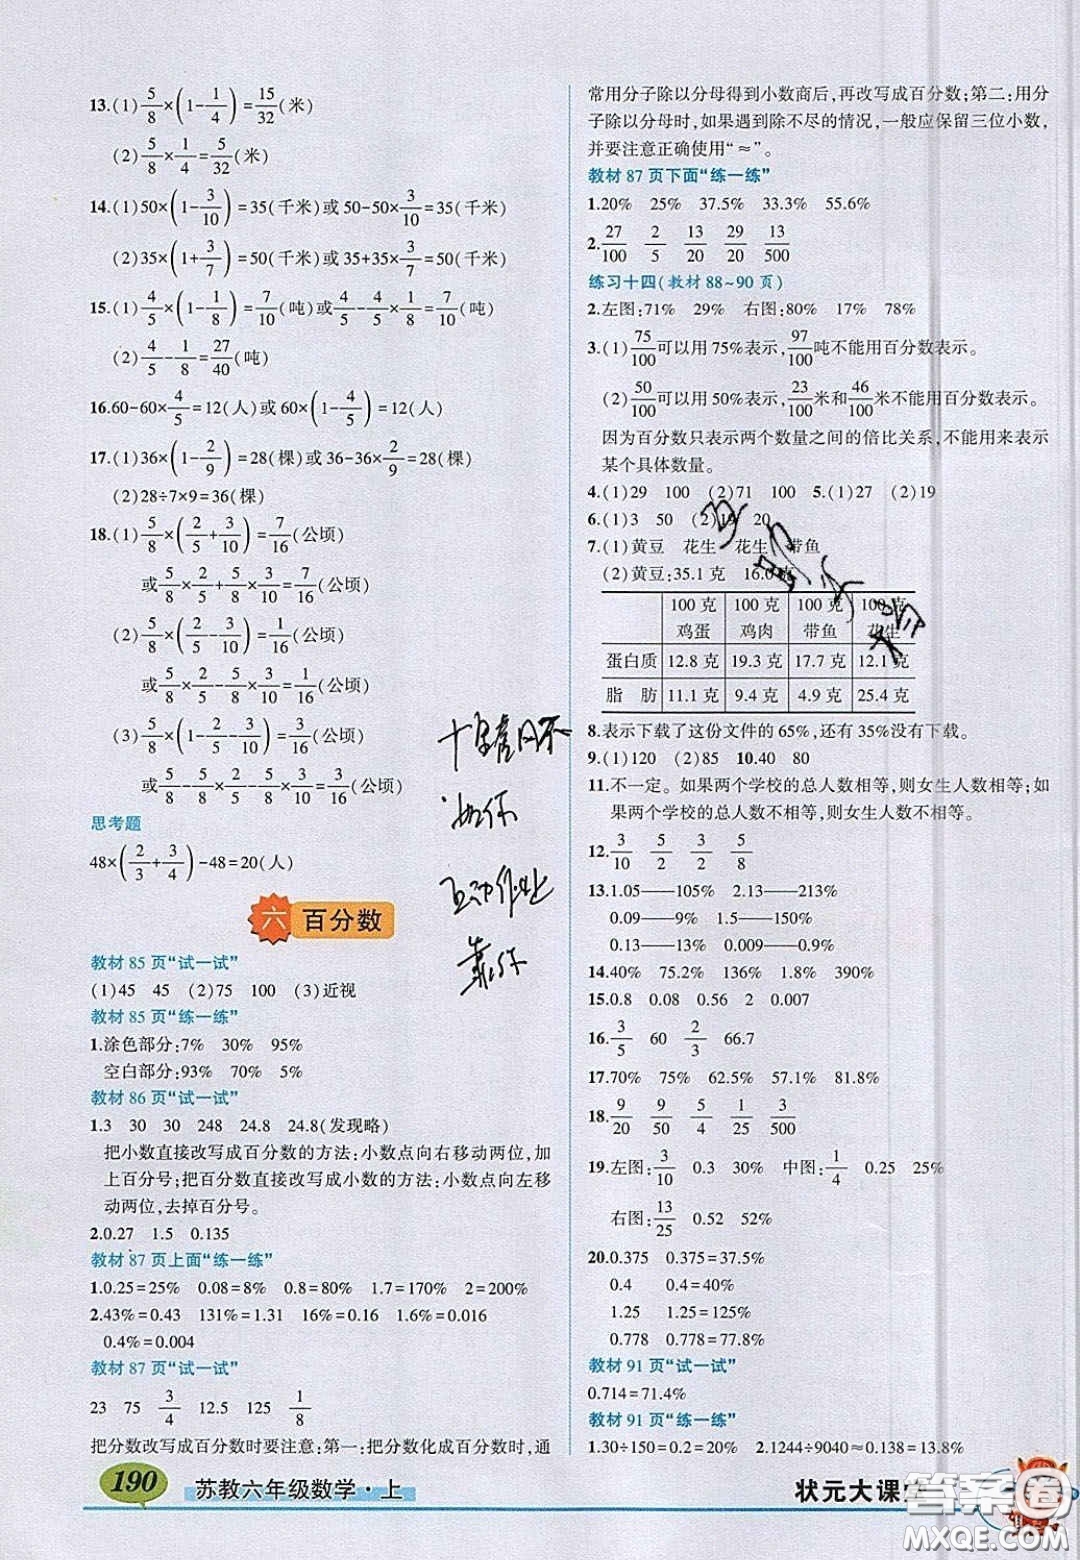 13.(1)5/8×(1-1/4)=15/32(米)
(2)5/8×1/4=5/32(米)
14.(1)50×(1-3/10)=35(千米)或50-50×3/10=35(千米)
(2)35×(1+3/7)=50(千米)或35+35×3/7=50(千米)
15.(1)4/5×(1-1/8)=7/10(吨)或4/5-4/5×1/8=7/10(吨)
(2)4/5-1/8=27/40(吨)
16.60-60×4/5=12(人)或60×(1-4/5)=12(人)
17.(1)36×(1-2/9)=28(棵)或36-36×2/9=28(棵)
(2)28÷7×9=36(棵)
18.(1)5/8×(2/5+3/10)=7/16(公顷)
或5/8×2/5+5/8×3/10=7/16(公顷)
(2)5/8×(2/5-3/10)=1/16(公顷)
或5/8×2/5-5/8×3/10=1/16(公顷)
(3)5/8×(1-2/5-3/10)=3/16(公顷)
或5/8-5/8×2/5-5/8×3/10=3/16(公顷)
思考题
48×(2/3+3/4)-48=20(人)
六 百分数
教材85页“试一试”
(1)45 45 (2)75 100 (3)近视
教材85页“练一练”
1.涂色部分:7% 30% 95%
空白部分:93% 70% 5%
教材86页“试一试”
1.3 30 30 248 24.8 24.8(发现略)
把小数直接改写成百分数的方法:小数点向右移动两位,加
上百分号;把百分数直接改写成小数的方法:小数点向左移
动两位,去掉百分号。
2.0.27 1.5 0.135
教材87页上面“练一练”
1.0.25=25% 0.08=8% 0.8=80% 1.7=170% 2=200%
2.43%=0.43 131%=1.31 16%=0.16 1.6%=0.016
0.4%=0.004
教材87页“试一试”
23 75 3/4 12.5 125 1/8
把分数改写成百分数时要注意:第一:把分数化成百分数时,通
常用分子除以分母得到小数商后,再改写成百分数;第二:用分
子除以分母时,如果遇到除不尽的情况,一般应保留三位小数,
并要注意正确使用“≈”。
教材87页下面“练一练”
1.20% 25% 37.5% 33.3% 55.6%
2.27/100 2/5 13/20 29/20 13/500
练习十四(教材88~90页)
2.左图:71% 29% 右图:80% 17% 78%
3.(1)75/100可以用75%表示,97/100吨不能用百分数表示。
(2)50/100可以用50%表示,23/100米和46/100米不能用百分数表示。
因为百分数只表示两个数量之间的倍比关系,不能用来表示
某个具体数量。
4.(1)29 100 (2)71 100 5.(1)27 (2)19
6.(1)3 50 (2)19 20
7.(1)黄豆 花生 花生 带鱼
(2)黄豆:35.1克 16.0克
100克 100克 100克 100克
鸡蛋 鸡肉 带鱼 花生
蛋白质 12.8克 19.3克 17.7克 12.1克
脂 肪 11.1克 9.4克 4.9克 25.4克
8.表示下载了这份文件的65%,还有35%没有下载。
9.(1)120 (2)85 10.40 80
11.不一定。如果两个学校的总人数相等,则女生人数相等;如
果两个学校的总人数不相等,则女生人数不相等。
12.3/10 5/2 3/2 5/8
13.1.05——105% 2.13——213%
0.09——9% 1.5——150%
0.13——13% 0.009——0.9%
14.40% 75.2% 136% 1.8% 390%
15.0.8 0.08 0.56 2 0.007
16.3/5 60 2/3 66.7
17.70% 75% 62.5% 57.1% 81.8%
18.9/20 91/50 5/4 1/40 3/500
19.左图:3/10 0.3 30% 中图:1/4 0.25 25%
右图:13/25 0.52 52%
20.0.375 0.375=37.5%
0.4 0.4=40%
1.25 1.25=125%
0.778 0.778=77.8%
教材91页“试一试”
0.714=71.4%
教材91页“练一练”
1.30÷150=0.2=20% 2.1244÷9040≈0.138=13.8%
190 苏教六年级数学·上
状元大课
答案圈
MXQE.COM